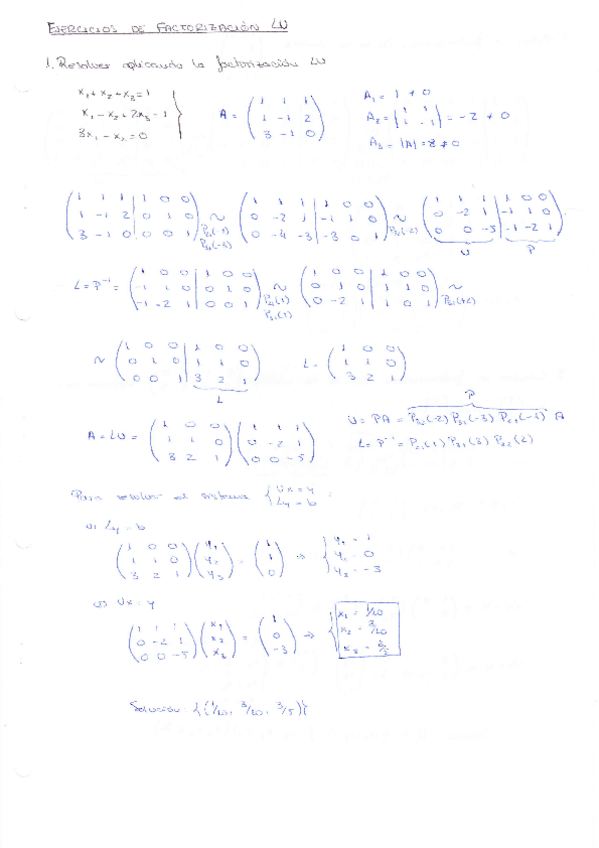 EJERCICIOS DE FACTORIZACIÓN LU
1. Resolver aplicando la factorización LU
x₁ + x₂ + x₃ = 1
x₁ - x₂ + 2x₃ = 1
3x₁ - x₂ = 0
A = (1 1 1; 1 -1 2; 3 -1 0)
A₁ = 1 ≠ 0
A₂ = |1 1; 1 -1| = -2 ≠ 0
A₃ = |A| = 8 ≠ 0
(1 1 1 | 1 0 0; 1 -1 2 | 0 1 0; 3 -1 0 | 0 0 1) ~ (1 1 1 | 1 0 0; 0 -2 1 | -1 1 0; 0 -4 -3 | -3 0 1) ~ P₃₂(-2) (1 1 1 | 1 0 0; 0 -2 1 | -1 1 0; 0 0 -5 | -1 -2 1)
U P
L = P⁻¹ = (1 0 0 | 1 0 0; -1 1 0 | 0 1 0; -1 -2 1 | 0 0 1) ~ P₂₁(1) P₃₁(1) (1 0 0 | 1 0 0; 0 1 0 | 1 1 0; 0 -2 1 | 1 0 1) ~ P₃₂(+2)
~ (1 0 0 | 1 0 0; 0 1 0 | 1 1 0; 0 0 1 | 3 2 1) L = (1 0 0; 1 1 0; 3 2 1)
L
P
A = LU = (1 0 0; 1 1 0; 3 2 1) (1 1 1; 0 -2 1; 0 0 -5)
U = PA = P₃₂(-2) P₃₁(-3) P₂₁(-1) A
L = P⁻¹ = P₂₁(1) P₃₁(3) P₃₂(2)
Para resolver el sistema { Ux = y
Ly = b :
i) Ly = b
(1 0 0; 1 1 0; 3 2 1) (y₁; y₂; y₃) = (1; 1; 0) ⇒ { y₁ = 1
y₂ = 0
y₃ = -3
ii) Ux = y
(1 1 1; 0 -2 1; 0 0 -5) (x₁; x₂; x₃) = (1; 0; -3) ⇒ { x₁ = 1/10
x₂ = 3/10
x₃ = 3/5
Solución: {(1/10, 3/10, 3/5)}